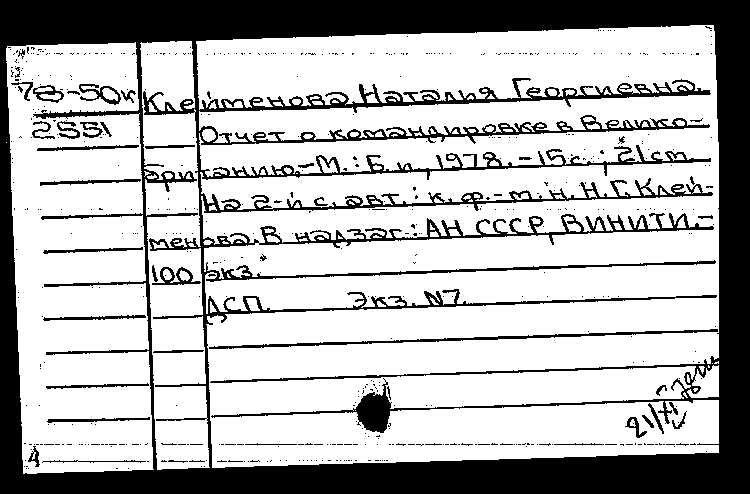 78-50к Клейменова, Наталия Георгиевна.
2551 Отчет о командировке в Велико-
британию.-М.: Б.и., 1978.-15с.; 21ст.
На 2-й с. авт.: к.ф.-м.н. Н.Г. Клей-
менова. В надзаг.: АН СССР, ВИНИТИ.-
100 экз.
ДСП. Экз. N7.
21/XI
4